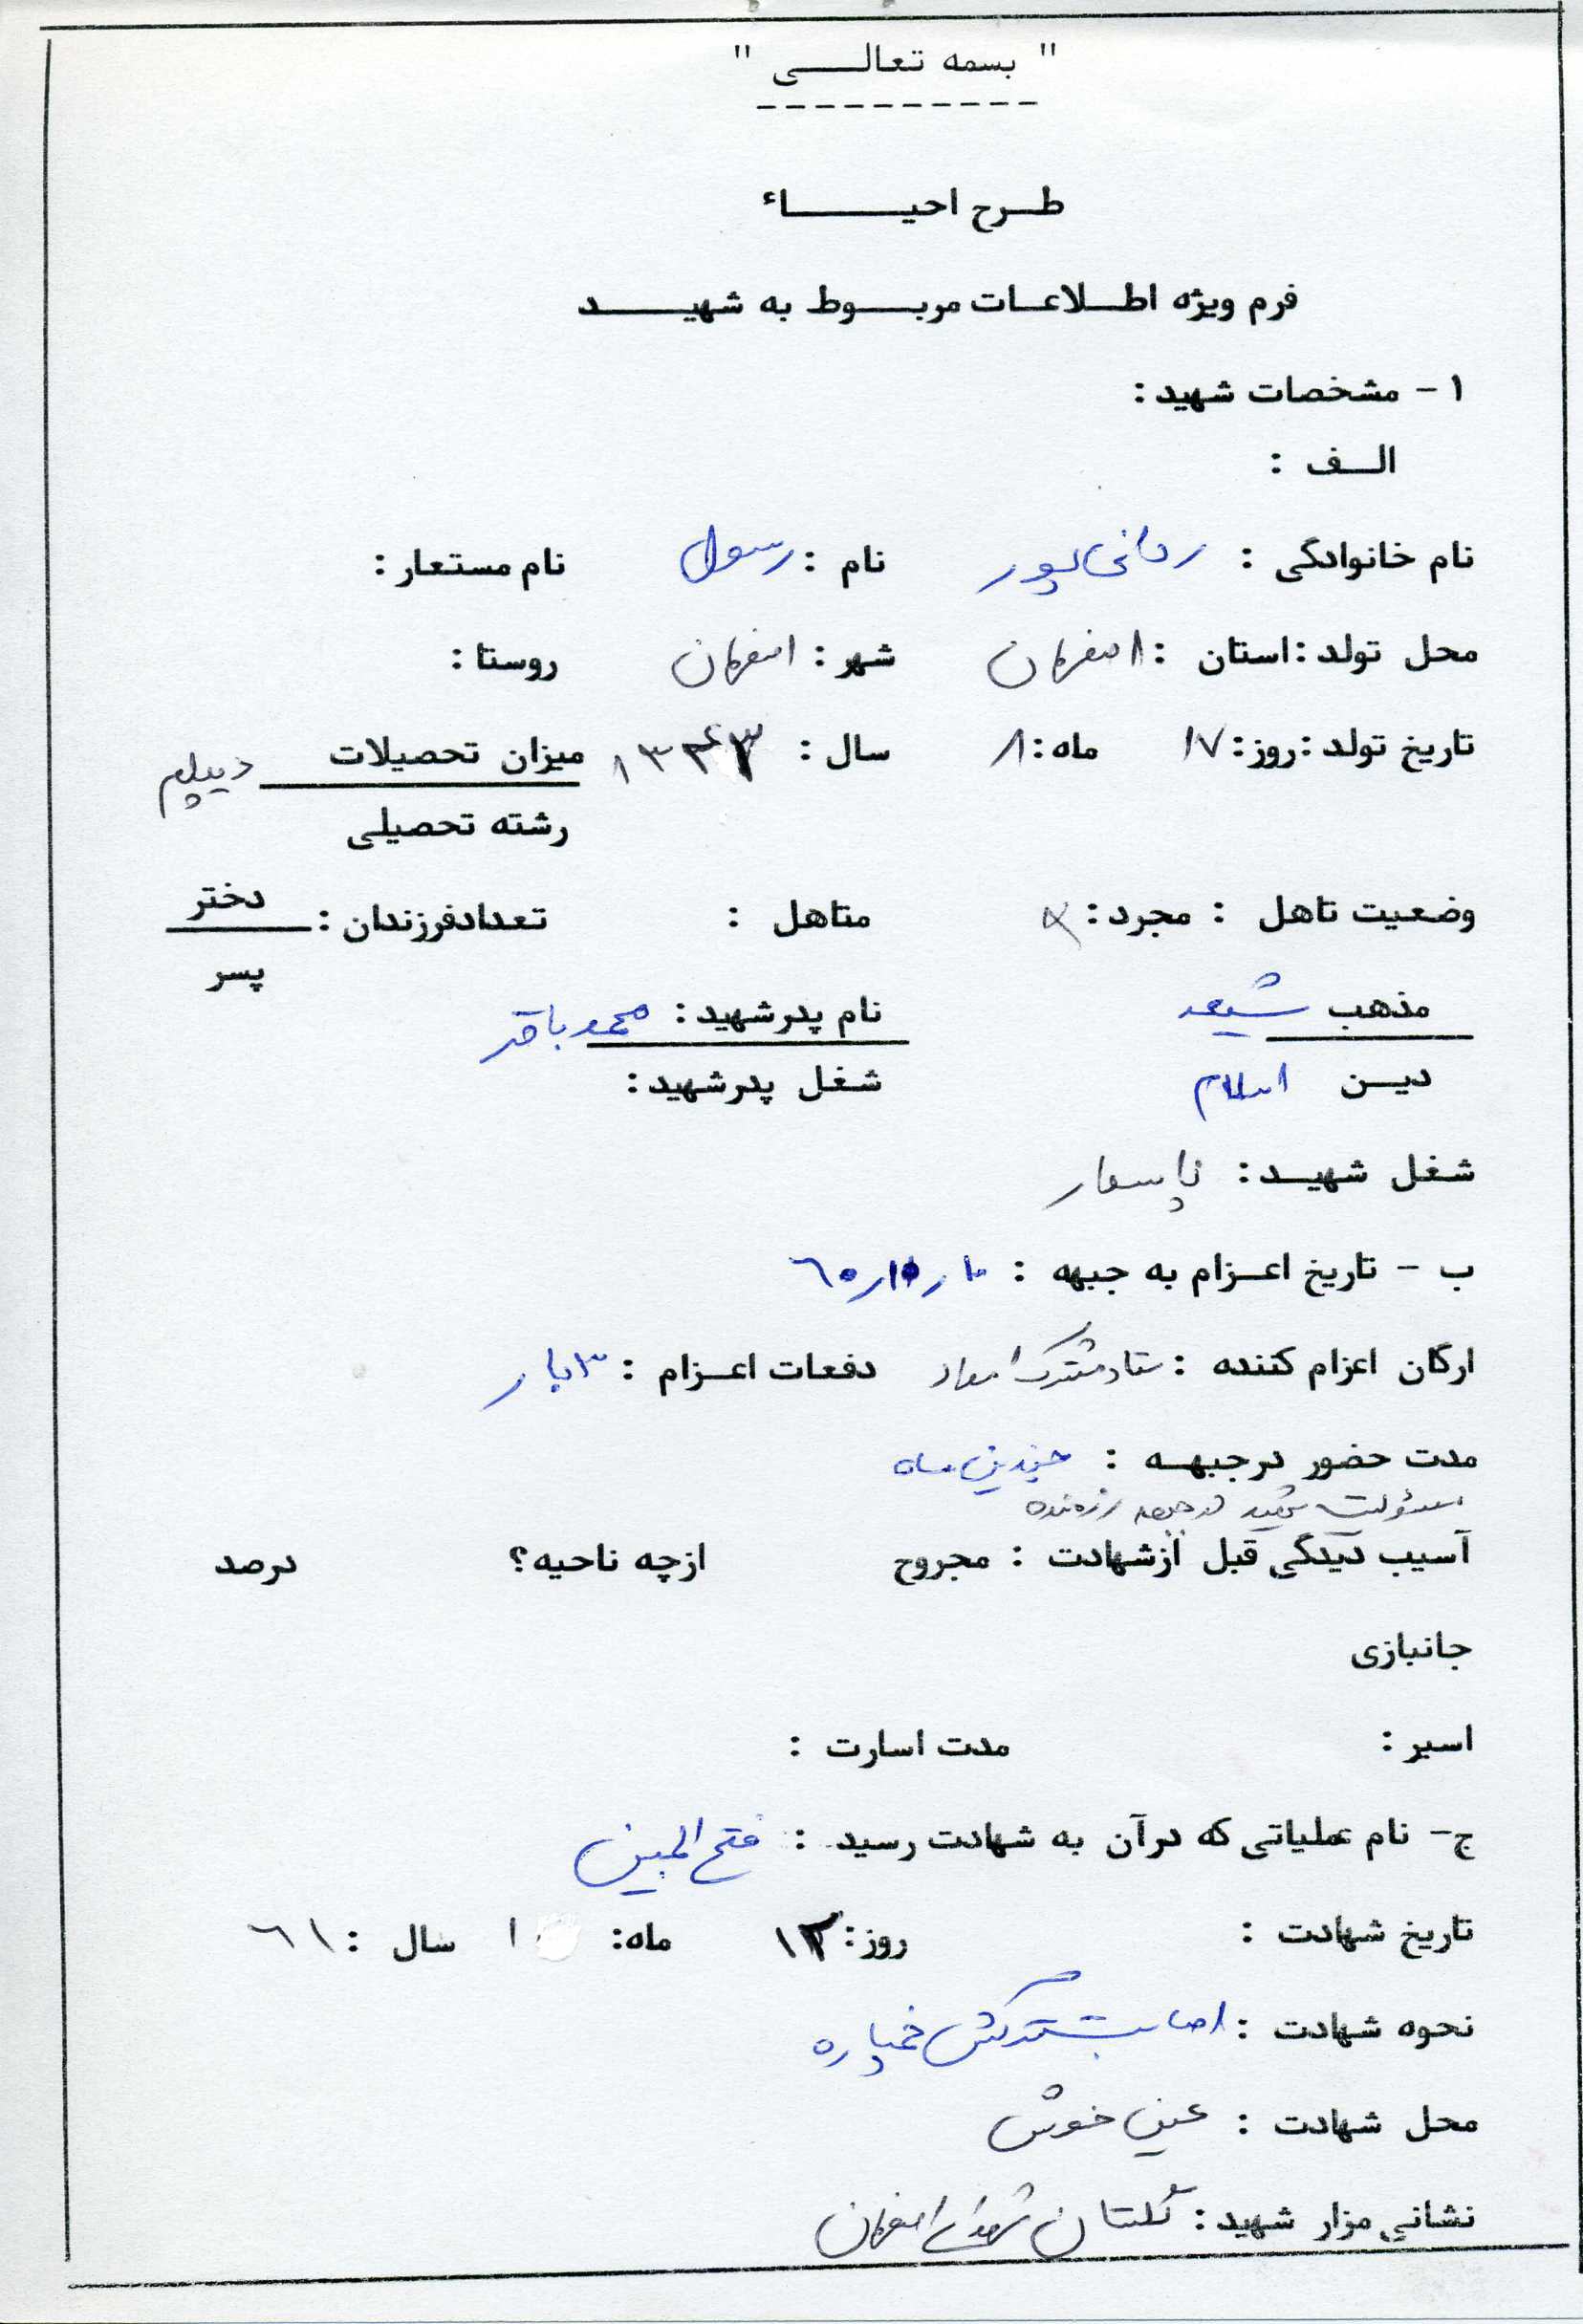 " بسمه تعالی "
طرح احیاء
فرم ویژه اطلاعات مربوط به شهید
۱ - مشخصات شهید :
الف :
نام خانوادگی : نام : رسول نام مستعار :
محل تولد : استان : اصفهان شهر : اصفهان روستا :
تاریخ تولد : روز : ۱۷ ماه : ۸ سال : میزان تحصیلات دیپلم
رشته تحصیلی
وضعیت تاهل : مجرد : × متاهل : تعداد فرزندان : دختر
پسر
مذهب شیعه نام پدر شهید : محمد باقر
دین اسلام شغل پدر شهید :
شغل شهید : پاسدار
ب - تاریخ اعزام به جبهه :
ارگان اعزام کننده : ستاد مشترک دفعات اعزام : ۳ بار
مدت حضور در جبهه : چندین ماه
مسئولیت شهید در جبهه رزمنده
آسیب دیدگی قبل از شهادت : مجروح از چه ناحیه ؟ درصد
جانبازی
اسیر : مدت اسارت :
ج - نام عملیاتی که در آن به شهادت رسید : فتح المبین
تاریخ شهادت : روز : ۱۲ ماه : ۱ سال : ۶۱
نحوه شهادت : اصابت ترکش خمپاره
محل شهادت : عین خوش
نشانی مزار شهید : گلستان شهدای اصفهان